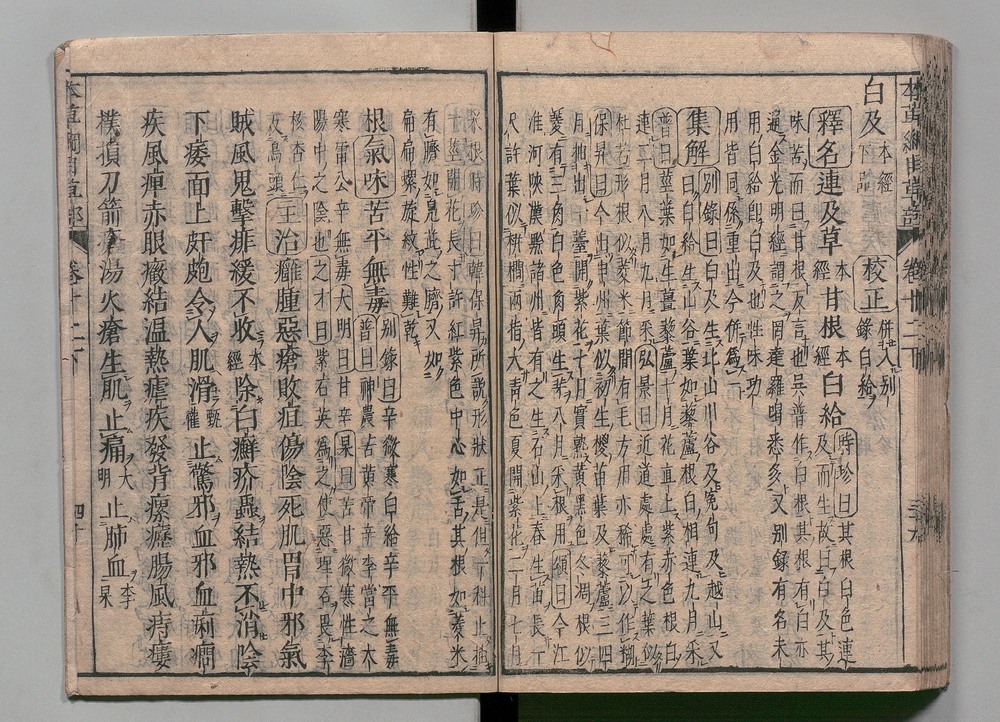 白及 本經下品 校正 併入別錄白給
釋名 連及草 本經 甘根 本經 白給 時珍曰其根白色連
及而生故曰白及其
味苦而曰甘根反言也吳普作白根其根有白亦
通金光明經謂之罔達羅喝悉多又别録有名未
用白給即白及也性味功
用皆同係重出今併爲一
集解 别錄曰白及生北山川谷及寃句及越山又
曰白給生山谷葉如藜蘆根白相連九月采
普曰莖葉如生薑藜蘆十月花直上紫赤色根白
連二月八月九月采弘景曰近道處處有之葉似
杜若形根似菱米節間有毛方用亦稀可以作糊
保昇曰今出申州葉似初生椶苗葉及藜蘆三四
月抽出一薹開紫花七月實熟黃黑色冬凋根似
菱有三角白色角頭生芽八月采根用頌曰今江
淮河陝漢黔諸州皆有之生石山上春生苗長一
尺許葉似栟櫚兩指大青色夏開紫花二月七月
采根時珍曰韓保昇所説形狀正是但一科止抽
一莖開花長寸許紅紫色中心如舌其根如菱米
有臍如鳬茈之臍又如
扁扁螺旋紋性難乾
根 氣味 苦平無毒 别錄曰辛微寒白給辛平無毒
普曰神農苦黃帝辛李當之大
寒雷公辛無毒大明曰甘辛杲曰苦甘微寒性濇
陽中之陰也之才曰紫石英爲之使惡理石畏李
核杏仁
反烏頭 主治 癰腫惡瘡敗疽傷陰死肌胃中邪氣
賊風鬼擊痱緩不收 本經 除白癬疥蟲結熱不消陰
下痿面上皯皰令人肌滑 甄權 止驚邪血邪血痢癇
疾風痺赤眼癥結温熱瘧疾發背瘰癧腸風痔瘻
撲損刀箭瘡湯火瘡生肌止痛 大明 止肺血 李杲
本草綱目草部
卷十二下
三十九
四十